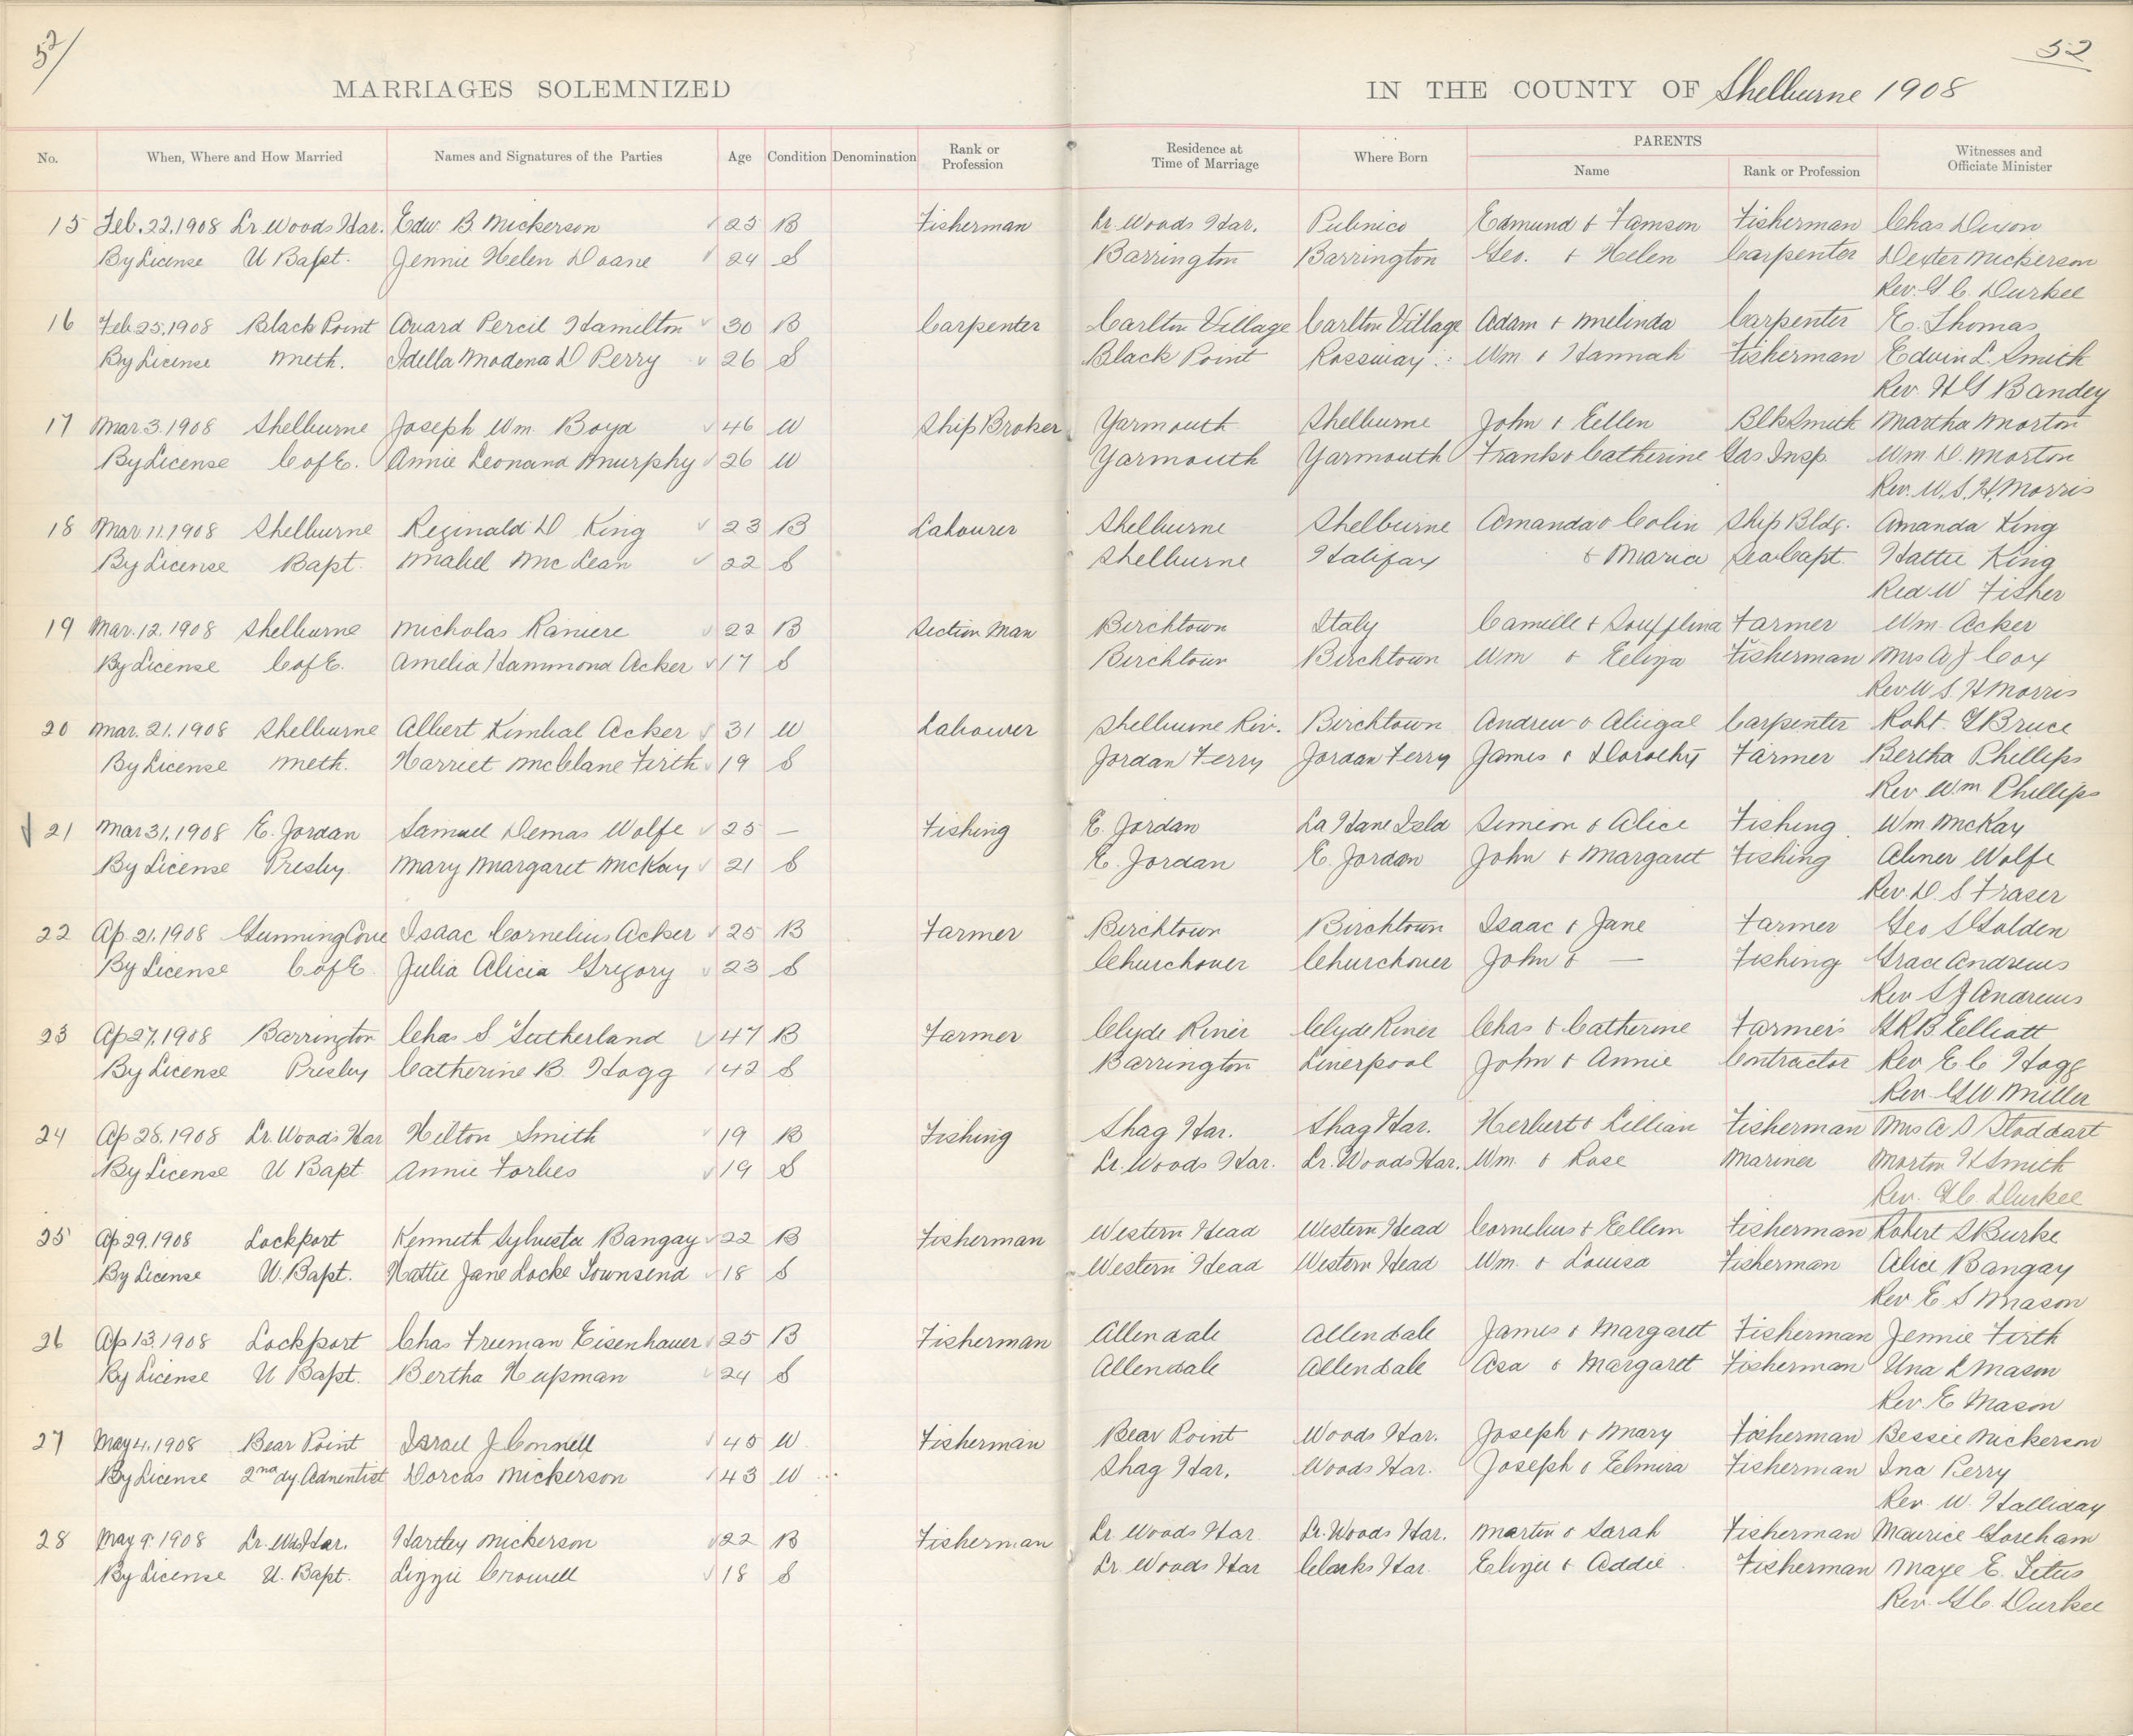 52/
52
MARRIAGES SOLEMNIZED IN THE COUNTY OF Shelburne 1908
No. When, Where and How Married Names and Signatures of the Parties Age Condition Denomination Rank or Profession Residence at Time of Marriage Where Born PARENTS Name Rank or Profession Witnesses and Officiate Minister
15 Feb. 22. 1908 Lr Woods Har. Edw. B. Nickerson 25 B Fisherman Lr. Woods Har. Pubnico Edmund & Tamson Fisherman Chas Dixon
By License U Bapt. Jennie Helen Doane 24 S Barrington Barrington Geo. & Helen Carpenter Dexter Nickerson
Rev. G C Durkee
16 Feb 25, 1908 Black Point Avard Percil Hamilton 30 B Carpenter Carlton Village Carlton Village Adam & Melinda Carpenter E. Thomas
By License Meth. Idella Modena D Perry 26 S Black Point Rossway Wm. & Hannah Fisherman Edwin L. Smith
Rev. H G Bandey
17 Mar. 3. 1908 Shelburne Joseph Wm. Boyd 46 W Ship Broker Yarmouth Shelburne John & Ellen Blk Smith Martha Morton
By License C of E. Annie Leonard Murphy 26 W Yarmouth Yarmouth Frank & Catherine Gas Insp. Wm D. Morton
Rev. W. S. H. Morris
18 Mar 11. 1908 Shelburne Reginald D King 23 B Labourer Shelburne Shelburne Amanda & Colin Ship Bldg. Amanda King
By License Bapt. Mabel McLean 22 S Shelburne Halifax & Maria Sea Capt. Hattie King
W Fisher
19 Mar. 12. 1908 Shelburne Nicholas Raniere 22 B Section Man Birchtown Italy Camille & Farmer Wm. Acker
By License C of E. Amelia Hammond Acker 17 S Birchtown Birchtown Wm & Eliza Fisherman Mrs A J Cox
Rev W S H Morris
20 Mar. 21. 1908 Shelburne Albert Kimbal Acker 31 W Labourer Shelburne Riv. Birchtown Andrew & Abigal Carpenter Robt. G Bruce
By License Meth. Harriet McClane Firth 19 S Jordan Ferry Jordan Ferry James & Dorothy Farmer Bertha Phillips
Rev Wm Phillips
21 Mar 31, 1908 E. Jordan Samuel Demas Wolfe 25 — Fishing E. Jordan La Have Isld Simeon & Alice Fishing. Wm McKay
By License Presby. Mary Margaret McKay 21 S E. Jordan E. Jordan John & Margaret Fishing Abner Wolfe
Rev. D. S Fraser
22 Ap. 21. 1908 Gunning Cove Isaac Cornelius Acker 25 B Farmer Birchtown Birchtown Isaac & Jane Farmer Geo S Golden
By License C of E Julia Alicia Gregory 23 S Churchover Churchover John & — Fishing Grace Andrews
Rev S J Andrews
23 Ap 27, 1908 Barrington Chas S Sutherland 47 B Farmer Clyde River Clyde River Chas & Catherine Farmer's G R B Elliott
By License Presby Catherine B. Hogg 42 S Barrington Liverpool John & Annie Contractor Rev E C Hogg
Rev. G W Miller
24 Ap 28. 1908 Lr. Woods Har Hilton Smith 19 B Fishing Shag Har. Shag Har. Herbert & Lillian Fisherman Mrs A D Stoddart
By License U Bapt Annie Forbes 19 S Lr. Woods Har. Lr. Woods Har. Wm. & Rose Mariner Morton H Smith
Rev. G C. Durkee
25 Ap 29. 1908 Lockport Kenneth Sylvester Bangay 22 B Fisherman Western Head Western Head Cornelius & Ellem Fisherman Robert S Burke
By License U. Bapt. Hattie Jane Locke Townsend 18 S Western Head Western Head Wm. & Louisa Fisherman Alice Bangay
Rev E S Mason
26 Ap 13. 1908 Lockport Chas Freeman Eisenhauer 25 B Fisherman Allendale Allendale James & Margaret Fisherman Jennie Firth
By License U Bapt. Bertha Hupman 24 S Allendale Allendale Asa & Margaret Fisherman Una L Mason
Rev E Mason
27 May 4. 1908 Bear Point Israel J Connell 45 W Fisherman Bear Point Woods Har. Joseph & Mary Fisherman Bessie Nickerson
By License 2nd dy. Adventist Dorcas Nickerson 43 W Shag Har. Woods Har. Joseph & Elmira Fisherman Ina Perry
Rev. W. Halliday
28 May 9. 1908 Lr. Wds Har. Hartley Nickerson 22 B Fisherman Lr Woods Har Lr. Woods Har. Martin & Sarah Fisherman Maurice Goreham
By License U. Bapt. Lizzie Crowell 18 S Lr. Woods Har Clarks Har. & Addie Fisherman Maye E. Titus
Rev. G C. Durkee